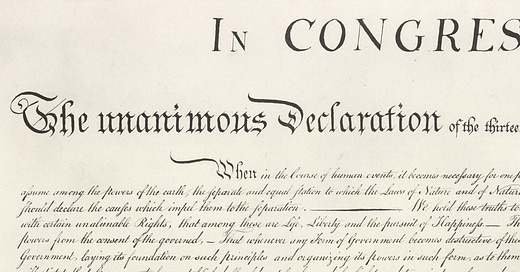 In CONGRES
The unanimous Declaration of the thirtee
When in the Course of human events, it becomes necessary for one
assume among the powers of the earth, the separate and equal station to which the Laws of Nature and of
should declare the causes which impel them to the separation. — We hold these truths to
with certain unalienable Rights, that among these are Life, Liberty and the pursuit of Happiness. —
powers from the consent of the governed, — That whenever any Form of Government becomes destructive of
Government, laying its foundation on such principles and organizing its powers in such form, as to